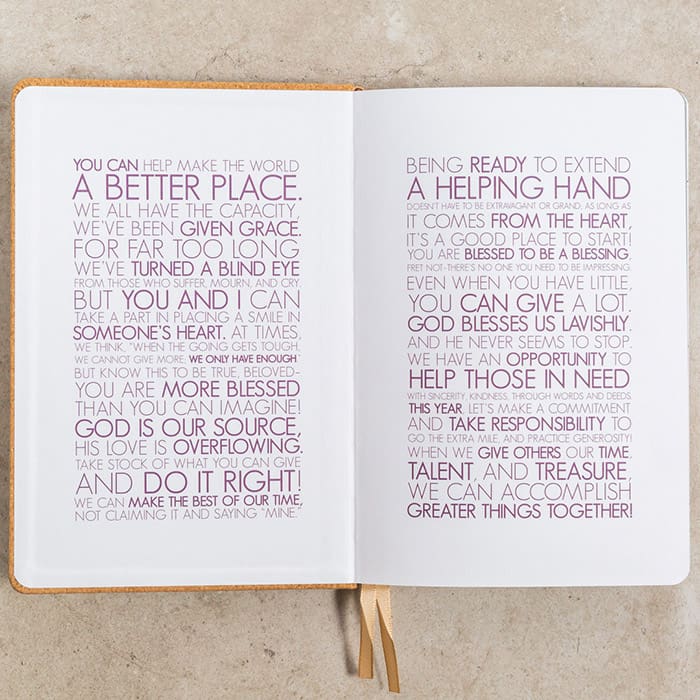 YOU CAN HELP MAKE THE WORLD
A BETTER PLACE.
WE ALL HAVE THE CAPACITY,
WE'VE BEEN GIVEN GRACE.
FOR FAR TOO LONG
WE'VE TURNED A BLIND EYE
FROM THOSE WHO SUFFER, MOURN, AND CRY.
BUT YOU AND I CAN
TAKE A PART IN PLACING A SMILE IN
SOMEONE'S HEART. AT TIMES,
WE THINK, "WHEN THE GOING GETS TOUGH,
WE CANNOT GIVE MORE; WE ONLY HAVE ENOUGH."
BUT KNOW THIS TO BE TRUE, BELOVED-
YOU ARE MORE BLESSED
THAN YOU CAN IMAGINE!
GOD IS OUR SOURCE,
HIS LOVE IS OVERFLOWING.
TAKE STOCK OF WHAT YOU CAN GIVE
AND DO IT RIGHT!
WE CAN MAKE THE BEST OF OUR TIME,
NOT CLAIMING IT AND SAYING "MINE."
BEING READY TO EXTEND
A HELPING HAND
DOESN'T HAVE TO BE EXTRAVAGANT OR GRAND, AS LONG AS
IT COMES FROM THE HEART,
IT'S A GOOD PLACE TO START!
YOU ARE BLESSED TO BE A BLESSING,
FRET NOT-THERE'S NO ONE YOU NEED TO BE IMPRESSING.
EVEN WHEN YOU HAVE LITTLE,
YOU CAN GIVE A LOT,
GOD BLESSES US LAVISHLY.
AND HE NEVER SEEMS TO STOP.
WE HAVE AN OPPORTUNITY TO
HELP THOSE IN NEED
WITH SINCERITY, KINDNESS, THROUGH WORDS AND DEEDS.
THIS YEAR, LET'S MAKE A COMMITMENT
AND TAKE RESPONSIBILITY TO
GO THE EXTRA MILE, AND PRACTICE GENEROSITY!
WHEN WE GIVE OTHERS OUR TIME,
TALENT, AND TREASURE,
WE CAN ACCOMPLISH
GREATER THINGS TOGETHER!